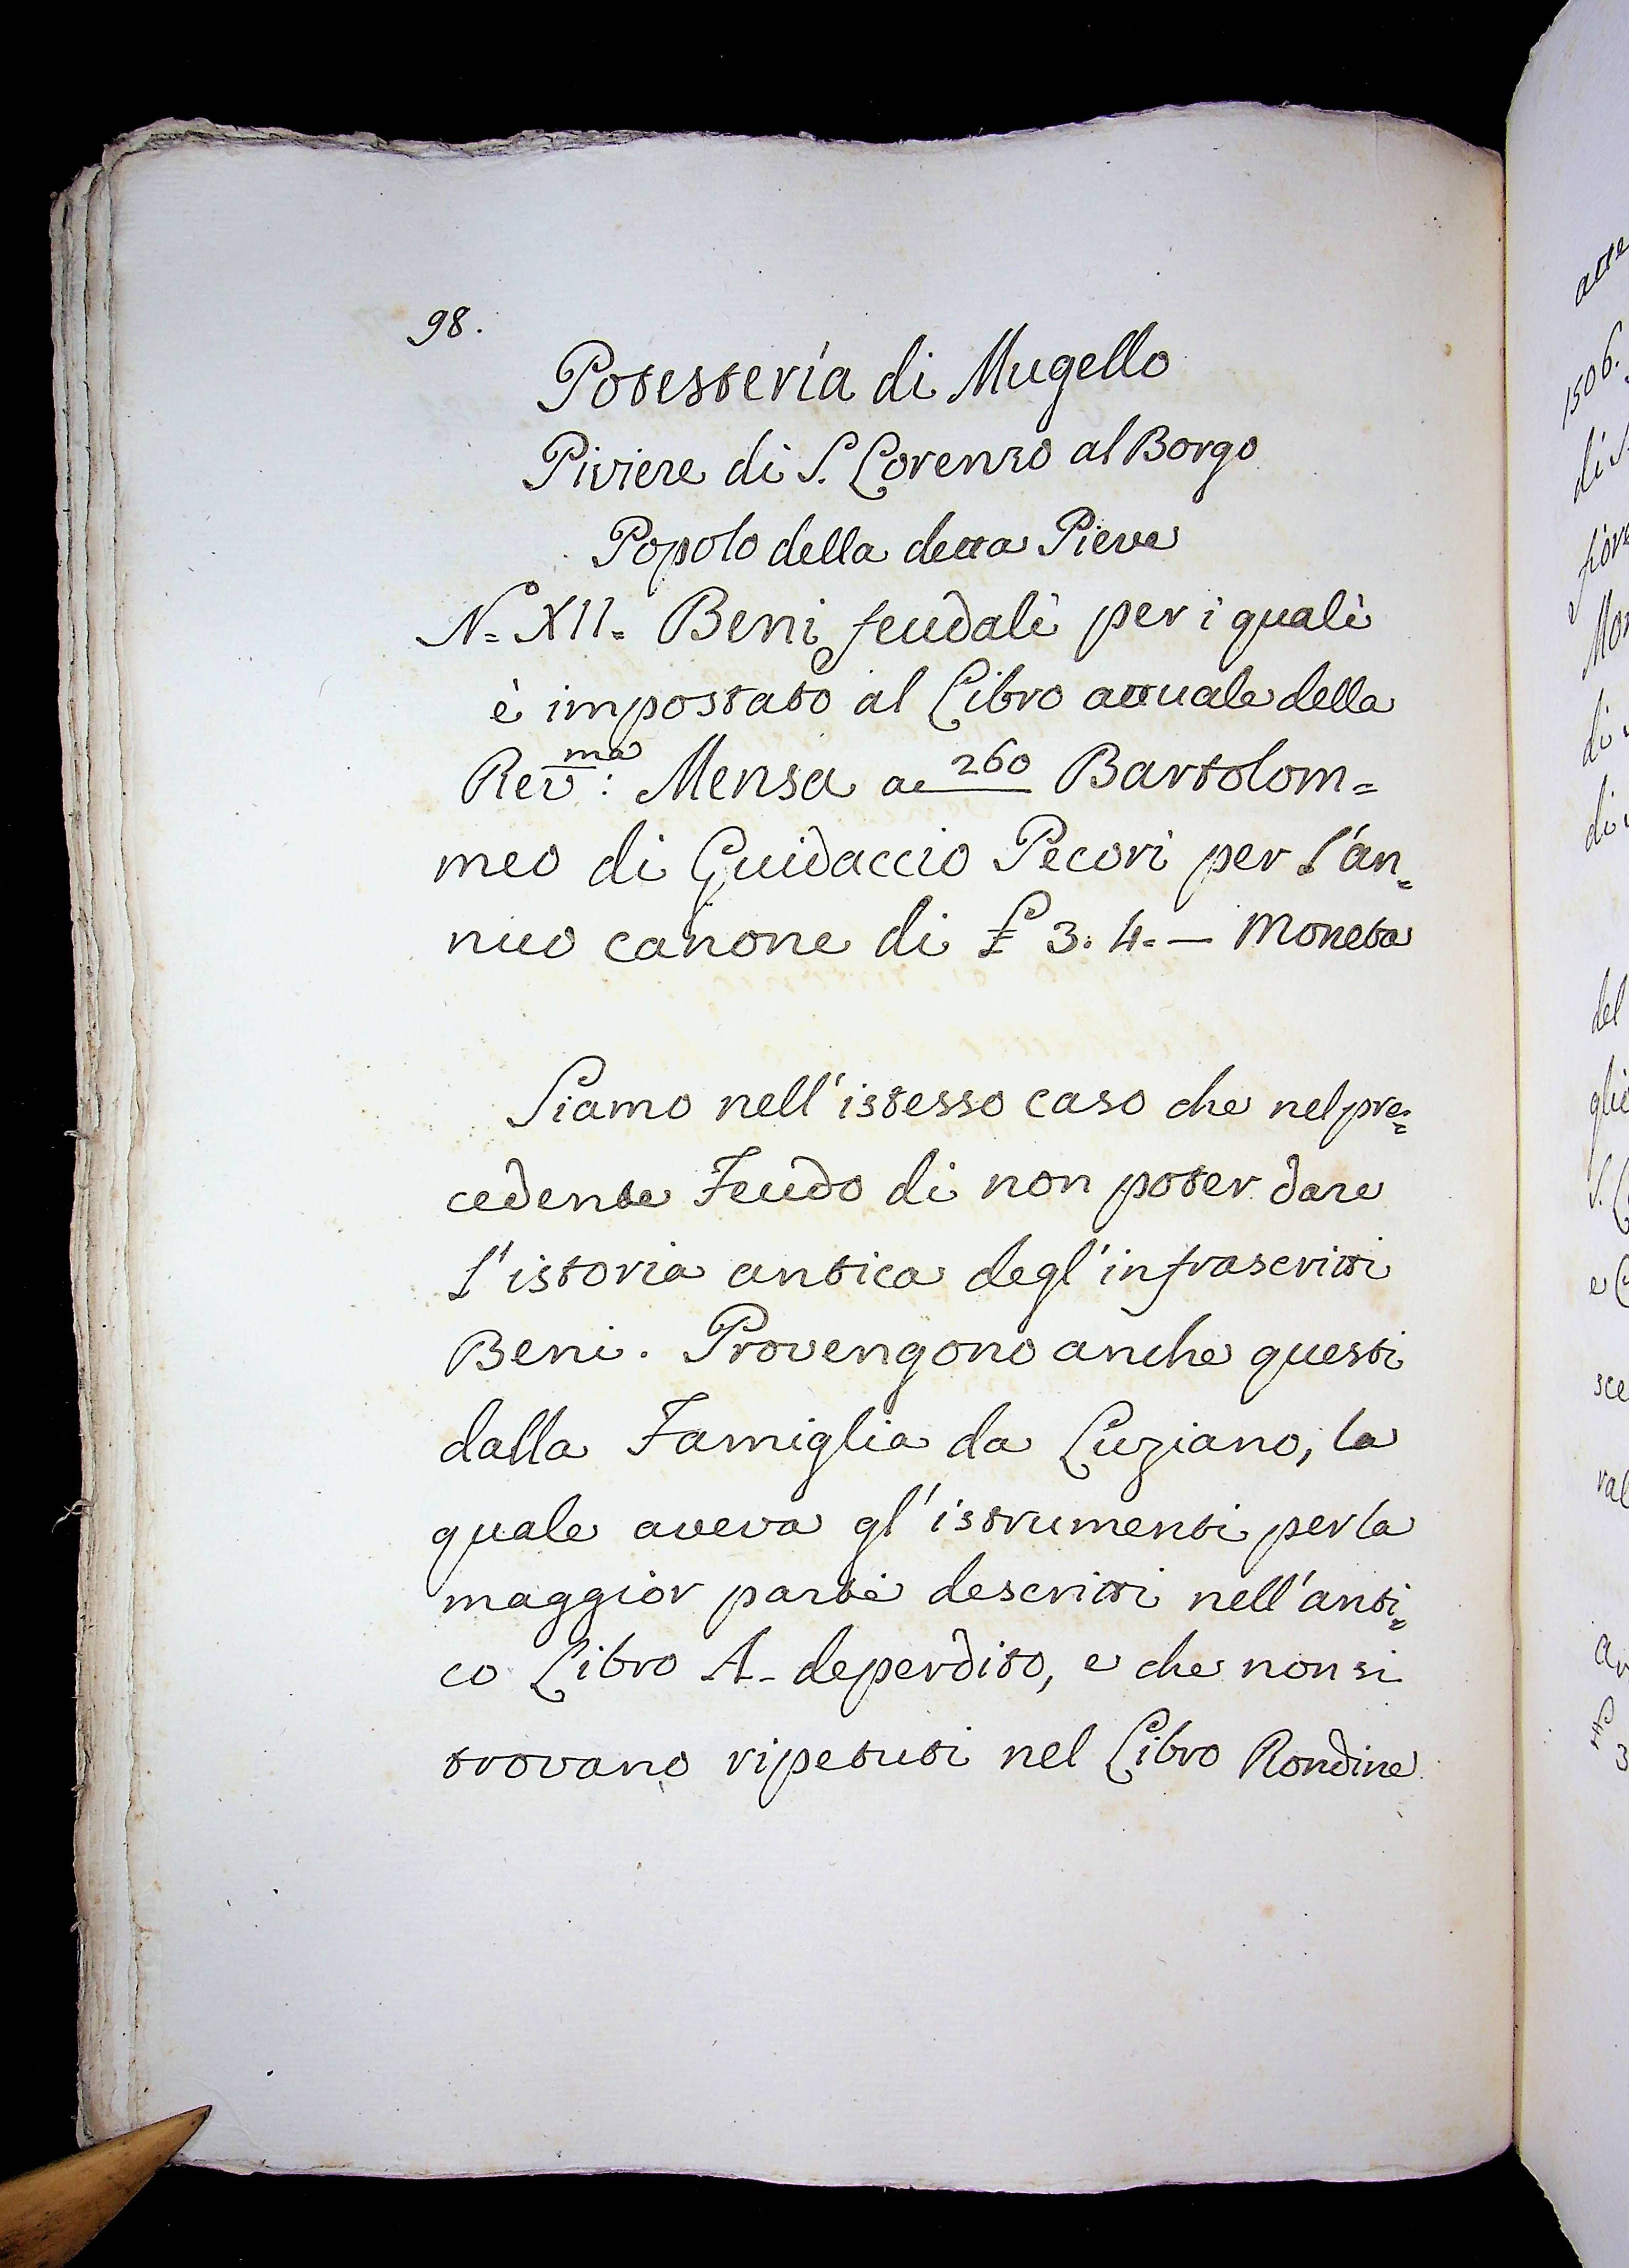 98.
Potesteria di Mugello
Piviere di S. Lorenzo al Borgo
Popolo della detta Pieve
N.º XII. Beni feudali per i quali
è impostato al Libro attuale della
Rev.ma: Mensa a 260 Bartolom=
meo di Guidaccio Pecori per l'an=
nuo canone di £ 3. 4. — Moneta
Siamo nell'istesso caso che nel pre=
cedente Feudo di non poter dare
l'istoria antica degl'infrascritti
Beni. Provengono anche questi
dalla Famiglia da Luziano, la
quale aveva gl'istrumenti per la
maggior parte descritti nell'anti=
co Libro A. deperdito, e che non si
trovano ripetuti nel Libro Rondine
1506.
di
di
di
del